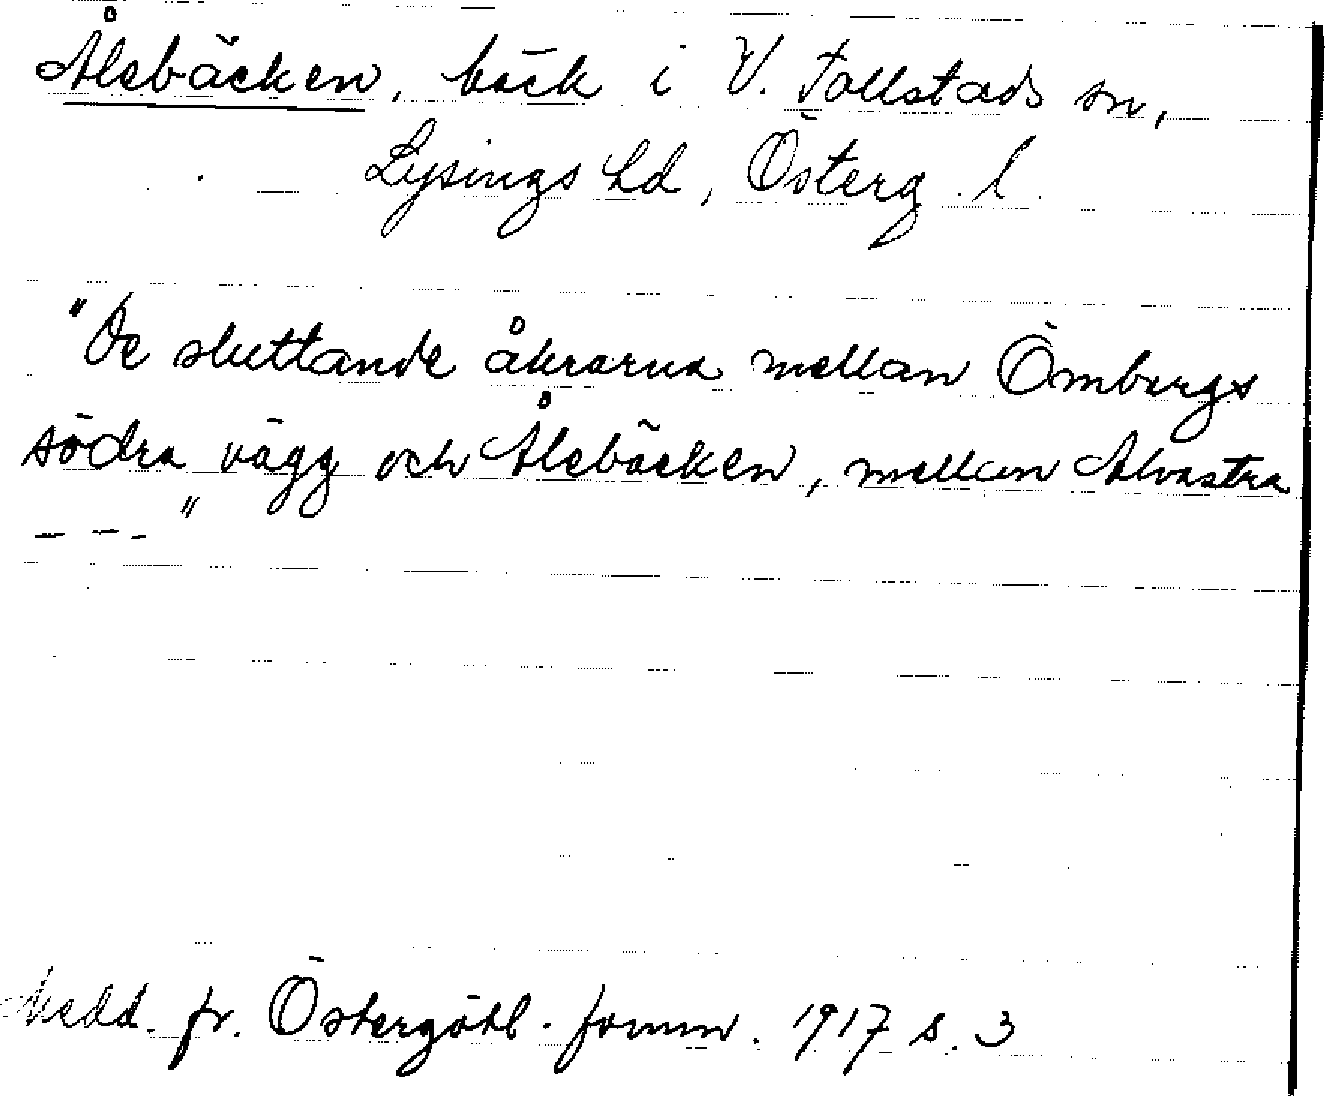 Ålebäcken, bäck i V. Tollstads sn,
Lysings hd, Österg. l.
"De sluttande åkrarna mellan Ombergs
södra vägg och Ålebäcken, mellan Alvastra
- - - "
Medd. fr. Östergötl. fornm. 1917 s. 3